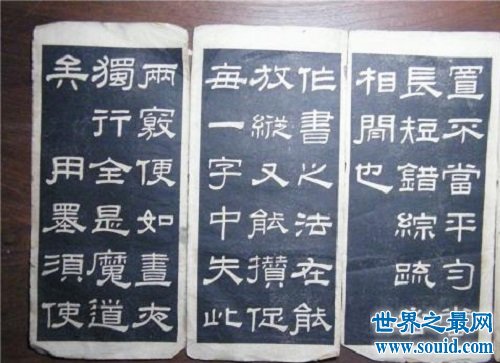 置不當平勻
長短錯綜疏
相間也
作書之法在能
放縱又能攢促
每一字中失此
兩竅便如晝夜
獨行全是魔道
矣 用墨須使
世界之最网
www.souid.com